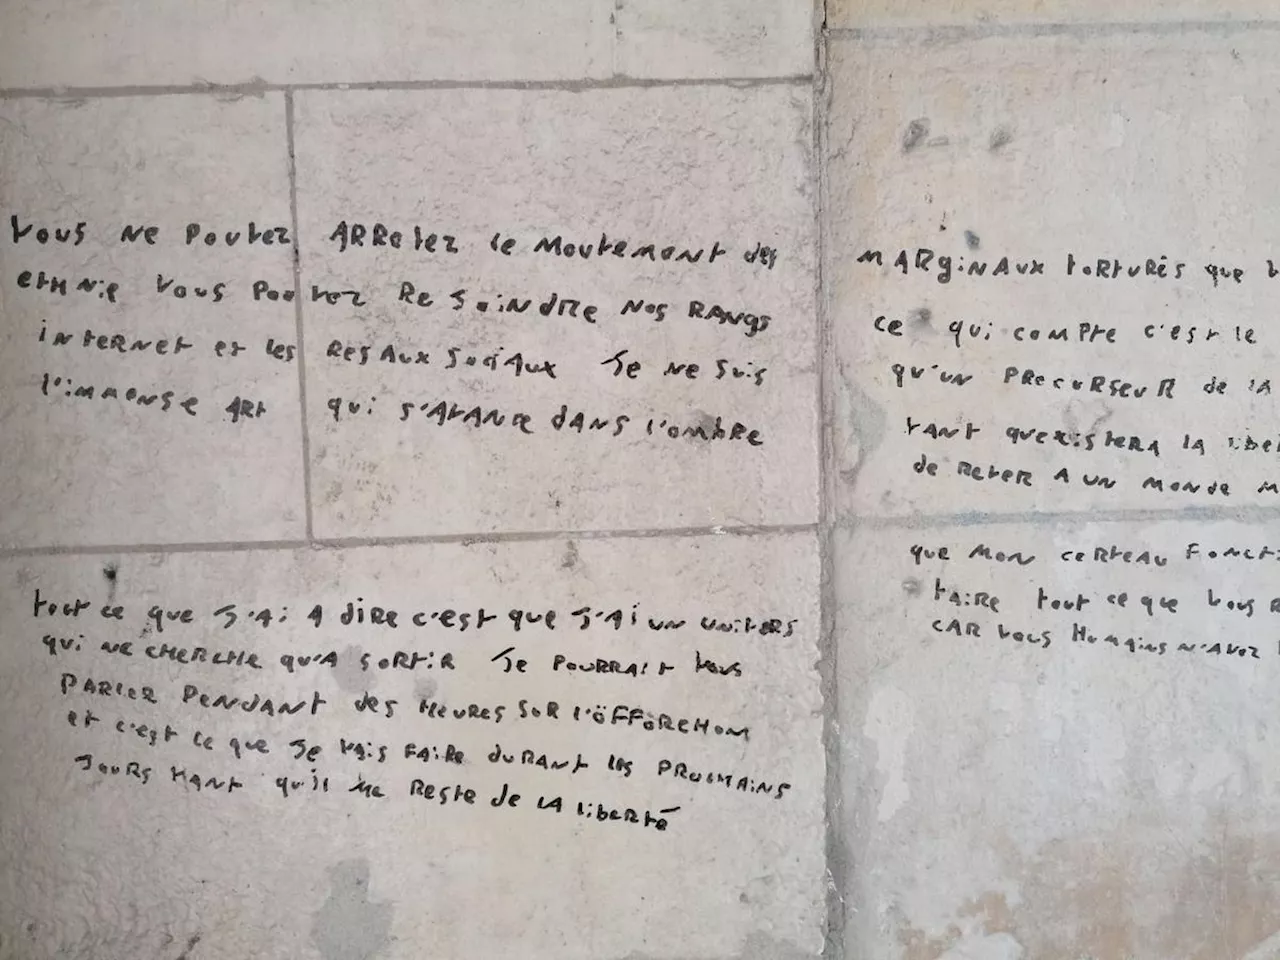 vous ne pouvez ARRetez le mouvement des
ethnie vous pouvez Rejoindre nos RANgs
internet et les Resaux sociaux Je ne suis
l'immense ART qui s'avance dans l'ombre
tout ce que J'Ai A dire c'est que J'Ai un univers
qui ne cherche qu'A sortir Je pourrait vous
PARler PENDANT des Heures sur l'öfforehom
et c'est ce que Je vais faire durant les prochains
Jours tant qu'il me Reste de la liberté
MARginAux torturés que
ce qui compte c'est le
qu'un PRecurseur de la
tant quexistera la
de Rever A un monde
que mon cerveau
faire tout ce que vous
CAR vous Humains n'avez